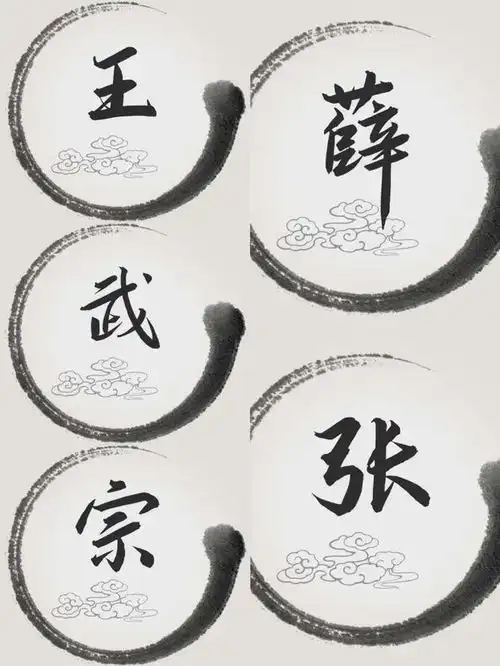 王
武
宗
薛
张